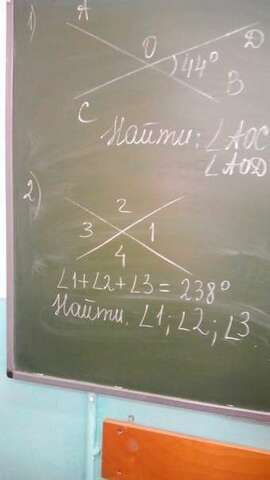 1)
A
O
D
44°
B
C
Найти: ∠AOC
∠AOD
2)
2
3
1
4
∠1+∠2+∠3=238°
Найти. ∠1; ∠2; ∠3